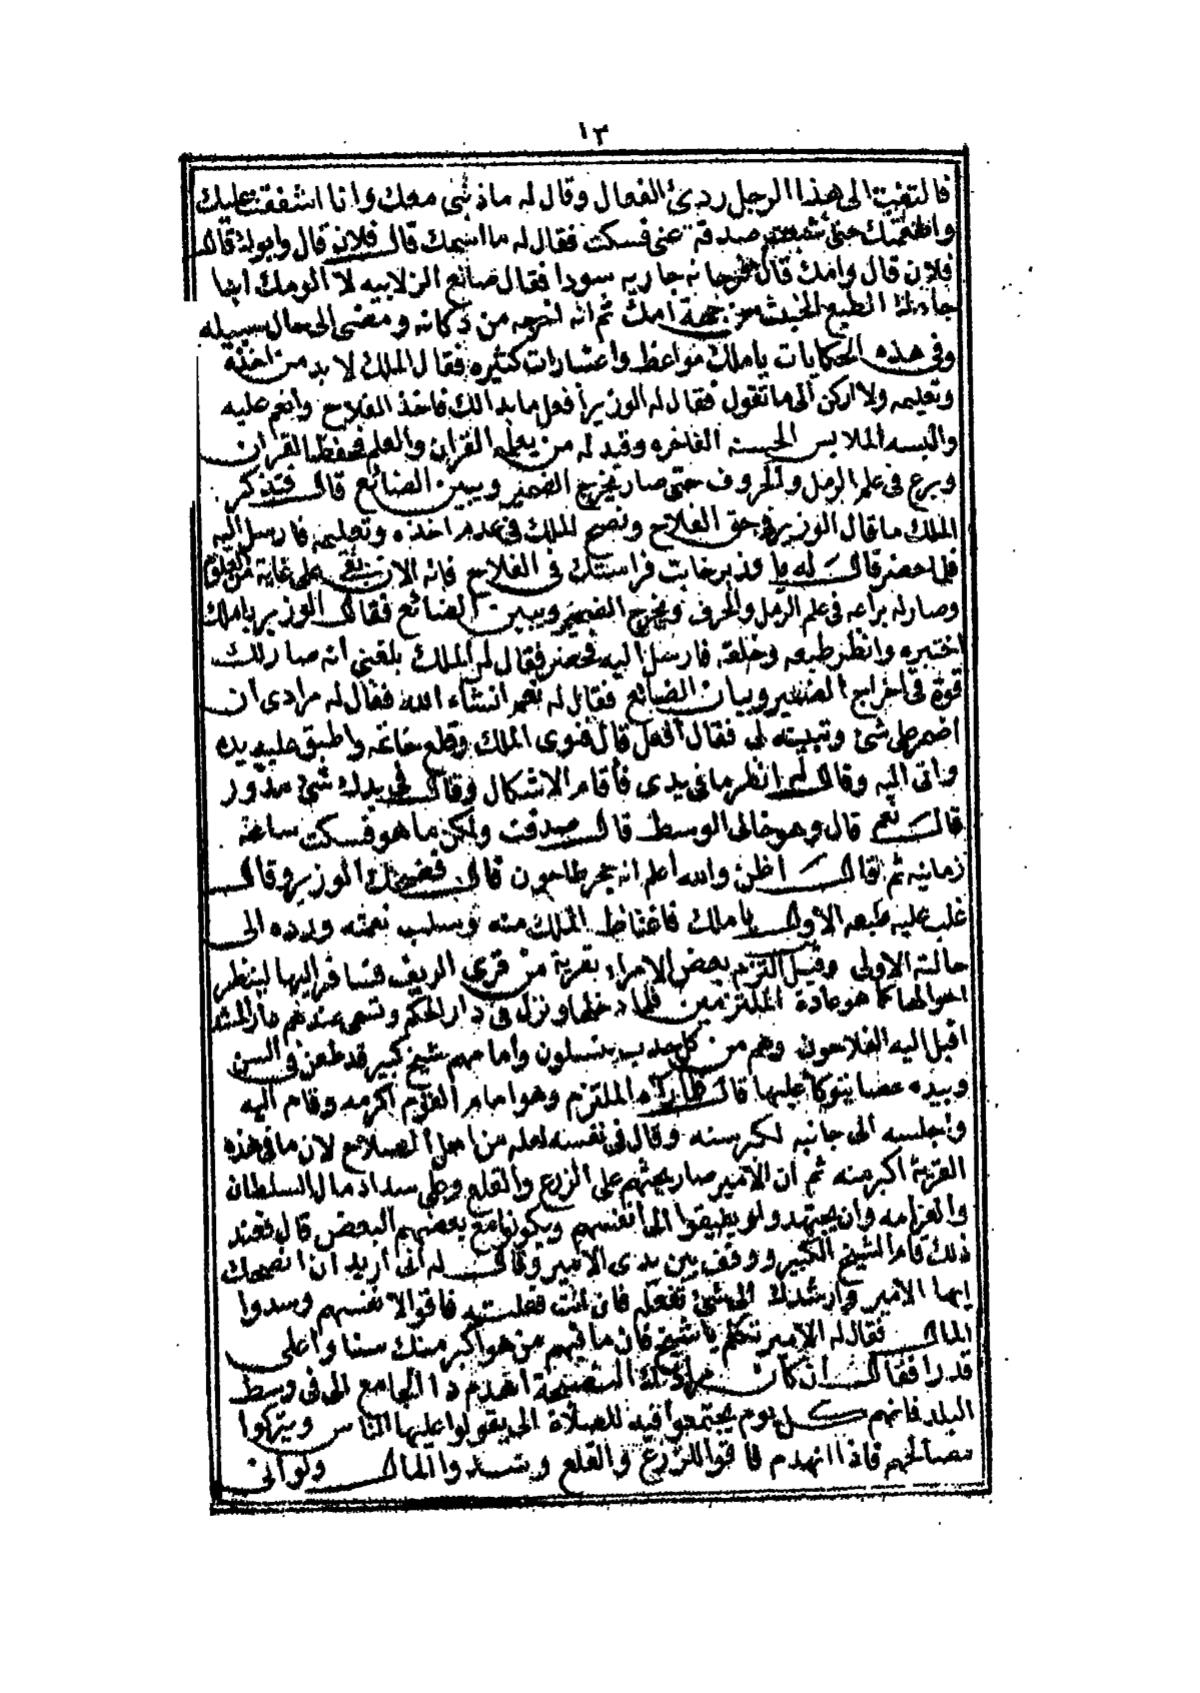 ١٣
فالتفت الى هذا الرجل ردئ الفعال وقال له ماذنبى معك وانا اشفقت عليك
واطعمتك حتى شبعت صدقة عنى فسكت فقال له ما اسمك قال فلان قال وابوك قال
فلان قال وامك قال مرجانه جاريه سودا فقال صانع الزلابيه لا الومك انها
جاءتك الطبع الخبيث من جهة امك ثم انه اخرجه من دكانه ومضى الى حال سبيله
وفى هذه الحكايات ياملك مواعظ واعتبارات كثيره فقال الملك لا بد من اخذه
وتعليمه ولا اركن الى ما تقول فقال له الوزير افعل ما بدالك فاخذ الفلاح وانعم عليه
والبسه الملابس الحسنه الفاخره وقيد له من يعلمه القران والعلم فحفظ القران
وبرع فى علم الرمل والحروف حتى صار يخرج الضمير ويبين الضائع قال فتذكر
الملك ما قال الوزير فى حق الفلاح ونصح الملك فى عدم اخذه وتعليمه فارسل اليه
فلما حضر قال له يا وزير خابت فراستك فى الفلاح فانه الان بقى على غاية من العلوم
وصار له براعه فى علم الرمل والحرف ويخرج الضمير ويبين الضائع فقال الوزير ياملك
اختبره وانظر طبعه وخلقه فارسل اليه فحضر فقال له الملك بلغنى انه صار لك
قوة فى اخراج الضمير وبيان الضائع فقال له نعم انشاء الله فقال له مرادى ان
اضمر على شئ وتبينه لى فقال افعل قال فنوى الملك وقلع خاتمه واطبق عليه يده
واتى اليه وقال له انظر ما فى يدى فأقام الاشكال وقال فى يدك شئ مدور
قال نعم قال وهو خالى الوسط قال صدقت ولكن ما هو فسكت ساعة
زمانيه ثم قال اظن والله اعلم انه حجر طاحون قال فضحك الوزير وقال
غلب عليه طبعه الاول ياملك فاغتاظ الملك منه وسلب نعمته ورده الى
حالته الاولى وقيل التزم بعض الامراء بقرية من قرى الريف فسافر اليها لينظر
احوالها كما هو عادة الملتزمين فلما دخلها ونزل فى دار الحكم وتسمى عندهم دار المشد
اقبل اليه الفلاحون وهم من كل حدب ينسلون وأمامهم شيخ كبير قد طعن فى السن
وبيده عصا يتوكأ عليها قال فلما راه الملتزم وهو امام القوم اكرمه وقام اليه
وأجلسه الى جانبه لكبر سنه وقال فى نفسه لعله من اهل الصلاح لان ما فى هذه
القرية اكبر منه ثم ان الامير صار يحثهم على الزرع والقلع وعلى سداد مال السلطان
والغرامه وان يجتهدو لو يطيقوا الى انفسهم ويكونوا مع بعضهم البعض قال فعند
ذلك قام الشيخ الكبير ووقف بين يدى الامير وقال له انى اريد ان انصحك
ايها الامير وارشدك الى شئ تفعله فان انت فعلت به فاقوالا نفسهم وسدوا
المال فقال له الامير تكلم يا شيخ فان ما فيهم من هو اكبر منك سنا واعلى
قدرا فقال ان كان مرادك النصيحة اهدم دا الجامع الى فى وسط
البلد فانهم كل يوم يجتمعوا فيه للصلاة الى يقولوا عليها الناس ويتركوا
مصالحهم فاذا انهدم فاقوا للزرع والقلع وسدوا المال ولو انى